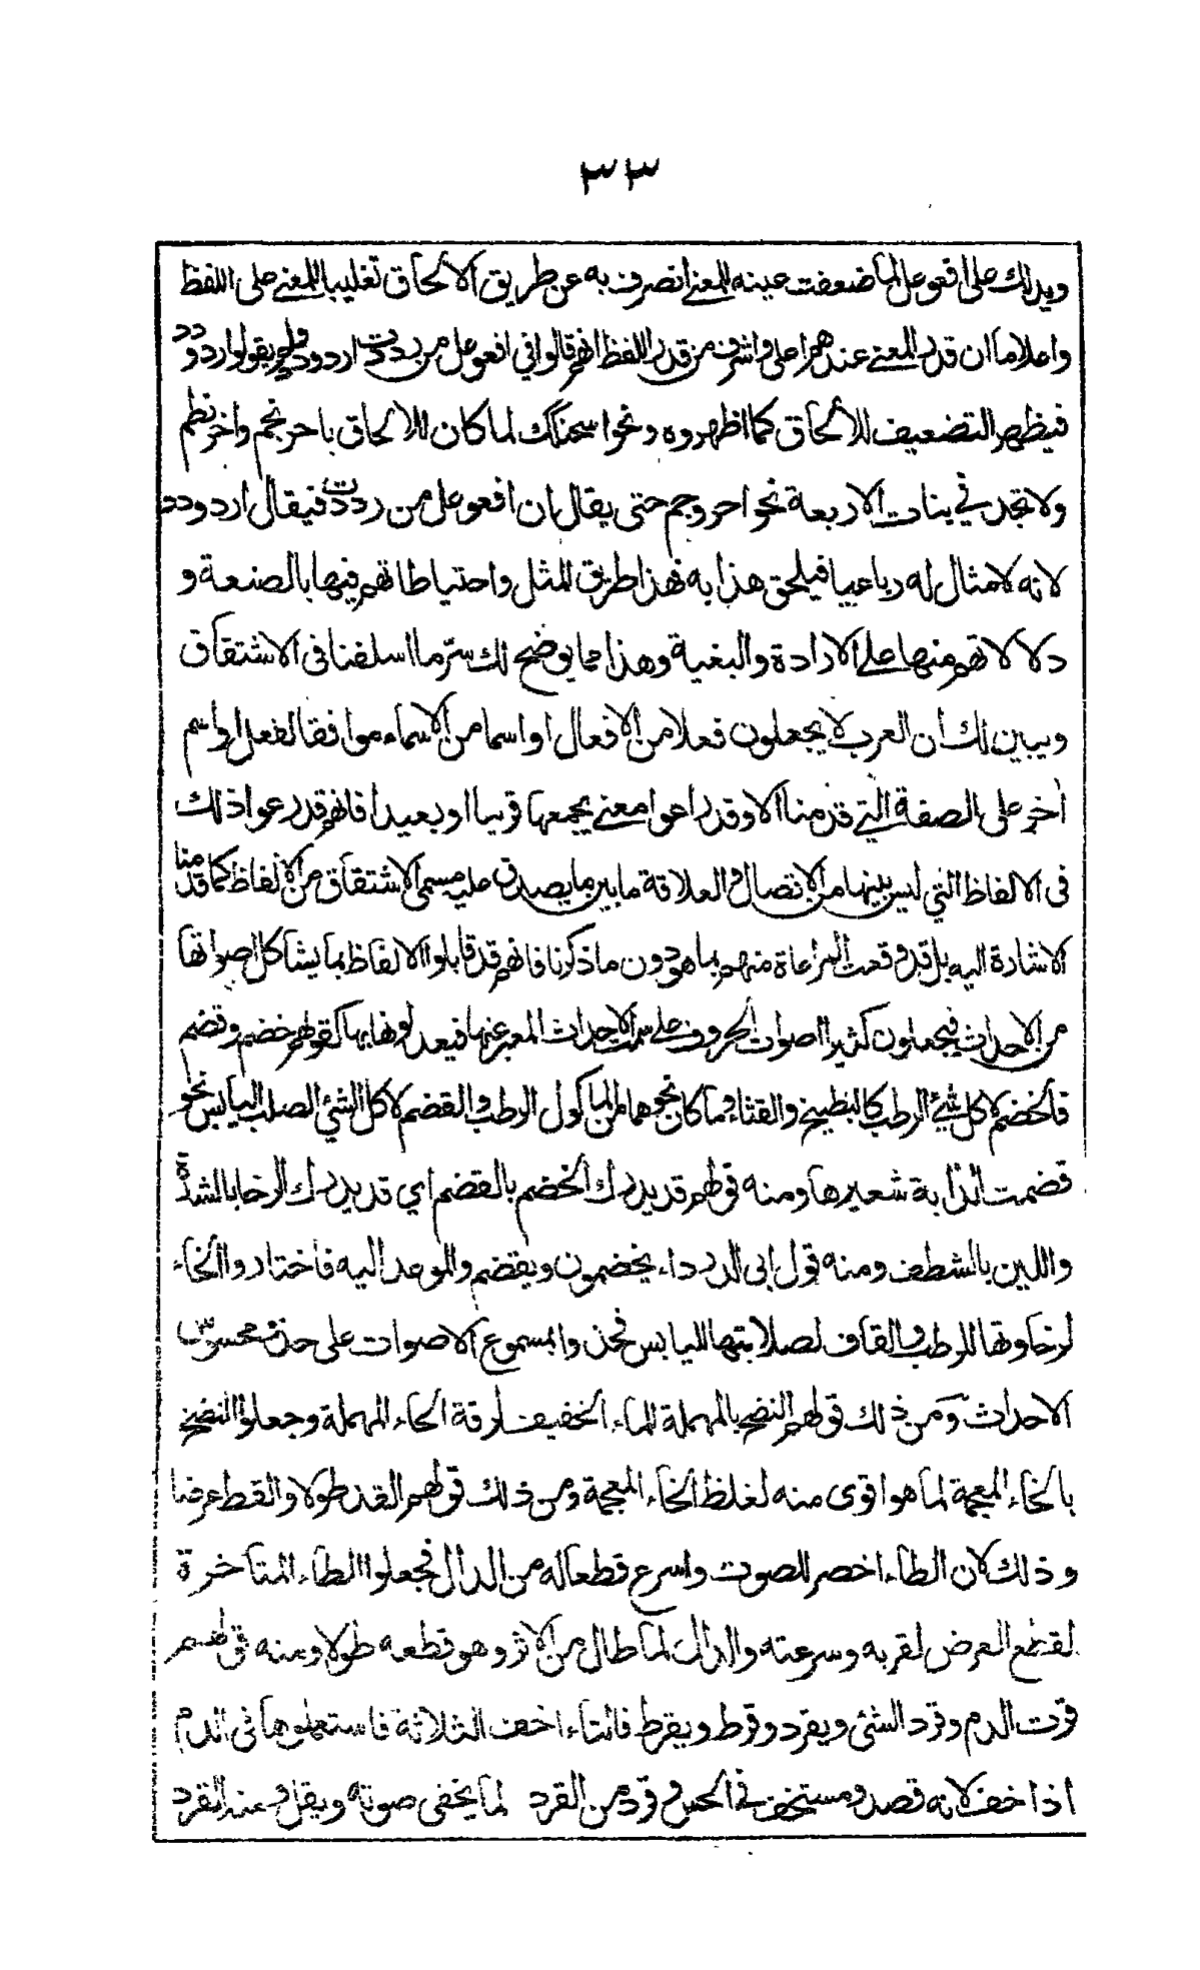 ٣٣
ويدلك على افعوعل لما ضعفت عينه للمعنى انصرف به عن طريق الالحاق تغليبا للمعنى على اللفظ
واعلاما ان قدر المعنى عندهم اعلى واشرف من قدر اللفظ انهم قالوا في افعوعل من رددت اردود ولم يقولوا اردودد
فيظهر التضعيف للالحاق كما اظهروه ونحو اسحنكك لما كان للالحاق باحرنجم واخرنطم
ولا تجد في بنات الاربعة نحو احروجم حتى يقال ان افعوعل من رددت فيقال اردودد
لانه لا مثال له رباعيا فيلحق هذا به فهذا طريق المثل واحتياطاتهم فيها بالصنعة و
دلالاتهم منها على الارادة والبغية وهذا مما يوضح لك سرّ ما اسلفنا فى الاشتقاق
ويبين لك ان العرب لا يجعلون فعلا من الافعال او اسما من الاسماء موافقا لفعل او اسم
اخر على الصفة التي قدمنا الا وقد راعوا معنى يجمعها قريبا او بعيدا فانهم قد رعوا ذلك
فى الالفاظ التي ليس بينها من الاتصال والعلاقة ما بين ما يصدق عليه مسمى الاشتقاق من الالفاظ كما قدمنا
الاشارة اليه بل قد وقعت المراعاة منهم بما هو دون ما ذكرنا فانهم قد قابلوا الالفاظ بما يشاكل اصواتها
من الاحداث فيجعلون كثيرا اصوات الحروف على سمت الاحداث المعبر عنها فيعدلونها بها كقولهم خضم وقضم
فالخضم لاكل شيئ الرطب كالبطيخ والقثاء وما كان نحوهما من الماكول الرطب والقضم لاكل الشيئ الصلب اليابس نحو
قضمت الدابة شعيرها ومنه قولهم قد يدرك الخضم بالقضم اي قد يدرك الرخا بالشدة
واللين بالشطف ومنه قول ابى الدرداء يخضمون ويقضم والموعد اليه فاختاروا الخاء
لرخاوتها للرطب والقاف لصلابتها لليابس فحذوا بمسموع الاصوات على حذو محسوس
الاحداث ومن ذلك قولهم النضح بالمهملة للماء الخفيف لرقة الحاء المهملة وجعلوا النضخ
بالخاء المعجمة لما هو اقوى منه لغلظ الخاء المعجمة ومن ذلك قولهم القد طولا والقط عرضا
وذلك لان الطاء اخصر للصوت واسرع قطعا له من الدال فجعلوا الطاء المتاخرة
لقطع العرض لقربه وسرعته والدال لما طال من الاثر وهو قطعه طولا ومنه قولهم
قرت الدم وقرد الشئ ويقرد وقرط ويقرط فالتاء اخف الثلاثة فاستعملوها في الدم
اذا خف لانه قصد ومستخف في الحس وقرد من القرد لما يخفى صوته ويقل وعند القرد